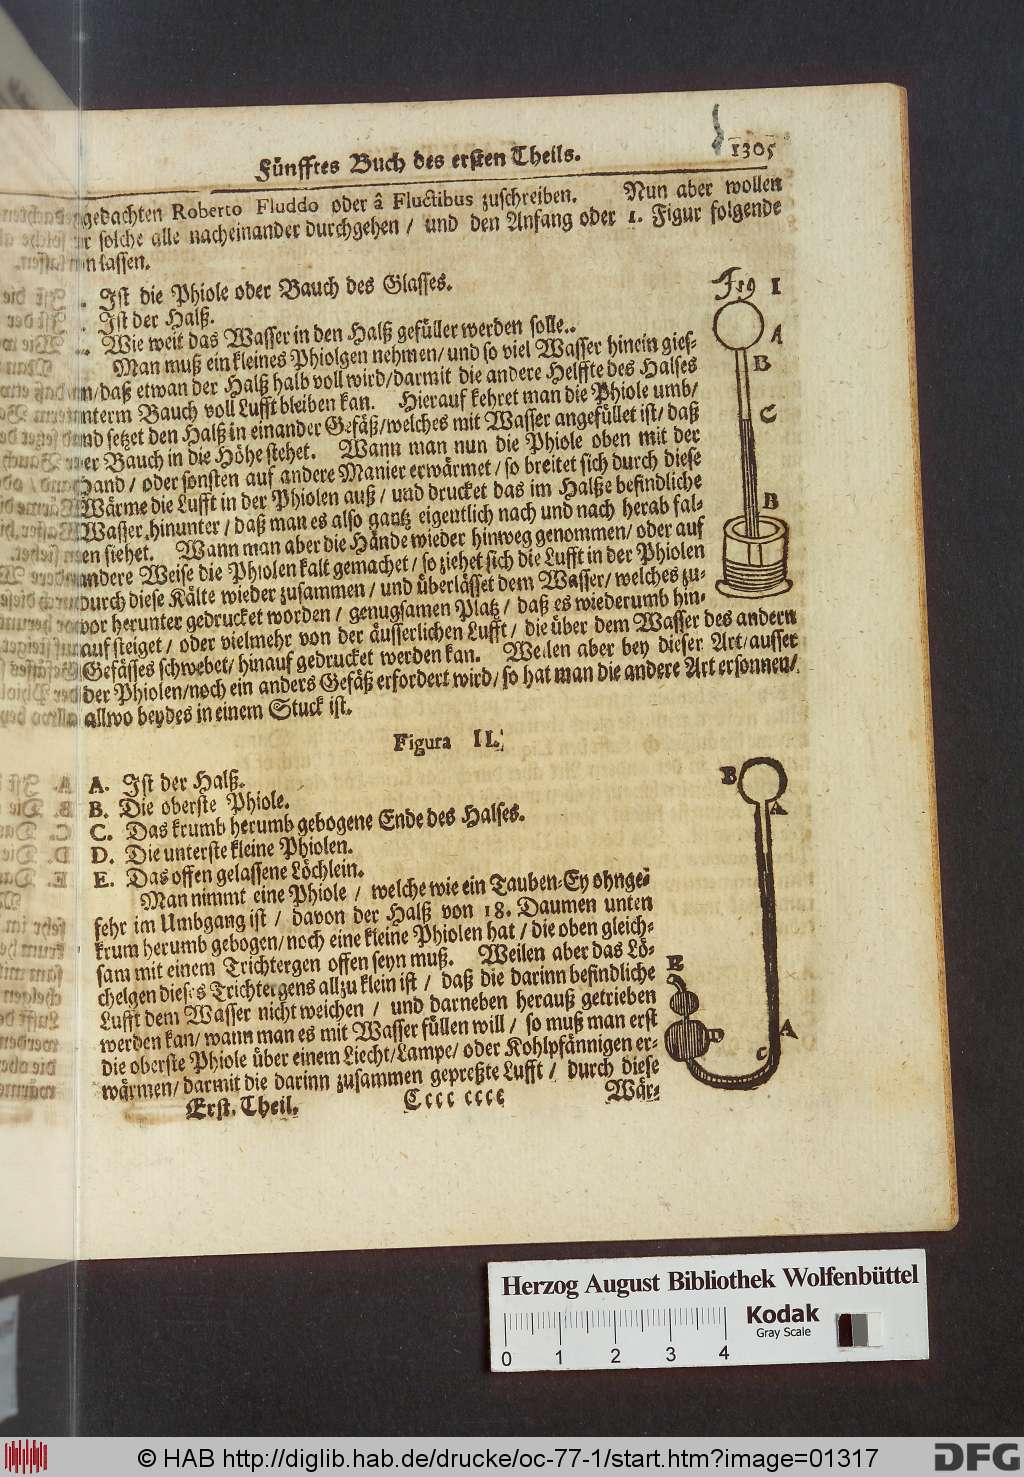 Fünfftes Buch des ersten Theils.
1305
gedachten Roberto Fluddo oder â Fluctibus zuschreiben. Nun aber wollen
solche alle nacheinander durchgehen / und den Anfang oder 1. Figur folgende
lassen.
Ist die Phiole oder Bauch des Glasses.
Ist der Halß.
Wie weit das Wasser in den Halß gefüller werden solle..
Man muß ein kleines Phiolgen nehmen/ und so viel Wasser hinein gies-
n/ daß etwan der Halß halb voll wird/ darmit die andere Helffte des Halses
nterm Bauch voll Lufft bleiben kan. Hierauf kehret man die Phiole umb/
nd setzet den Halß in einander Gefäß/ welches mit Wasser angefüllet ist/ daß
er Bauch in die Höhe stehet. Wann man nun die Phiole oben mit der
Hand / oder sonsten auf andere Manier erwärmet / so breitet sich durch diese
Wärme die Lufft in der Phiolen auß / und drucket das im Halße befindliche
Wasser hinunter / daß man es also gantz eigentlich nach und nach herab fal-
en siehet. Wann man aber die Hände wieder hinweg genommen/ oder auf
andere Weise die Phiolen kalt gemachet / so ziehet sich die Lufft in der Phiolen
durch diese Kälte wieder zusammen / und überlässet dem Wasser/ welches zu-
vor herunter gedrucket worden / genugsamen Platz / daß es wiederumb hin-
auf steiget / oder vielmehr von der äusserlichen Lufft / die über dem Wasser des andern
Gefässes schwebet/ hinauf gedrucket werden kan. Weilen aber bey dieser Art/ ausser
der Phiolen/ noch ein anders Gefäß erfordert wird/ so hat man die andere Art ersonnen/
allwo beydes in einem Stuck ist.
Fig I
A
B
C
B
Figura II.
A. Ist der Halß.
B. Die oberste Phiole.
C. Das krumb herumb gebogene Ende des Halses.
D. Die unterste kleine Phiolen.
E. Das offen gelassene Löchlein.
Man nimmt eine Phiole / welche wie ein Tauben-Ey ohnge-
fehr im Umbgang ist / davon der Halß von 18. Daumen unten
krum herumb gebogen/ noch eine kleine Phiolen hat / die oben gleich-
sam mit einem Trichtergen offen seyn muß. Weilen aber das Lö-
chelgen dieses Trichtergens allzu klein ist / daß die darinn befindliche
Lufft dem Wasser nicht weichen / und darneben herauß getrieben
werden kan/ wann man es mit Wasser füllen will / so muß man erst
die oberste Phiole über einem Liecht/ Lampe/ oder Kohlpfännigen er-
wärmen/ darmit die darinn zusammen gepreßte Lufft / durch diese
Erst. Theil. Cccc cccc Wär-
B
A
E
D
A
C
Herzog August Bibliothek Wolfenbüttel
Kodak
Gray Scale
0 1 2 3 4
© HAB http://diglib.hab.de/drucke/oc-77-1/start.htm?image=01317
DFG